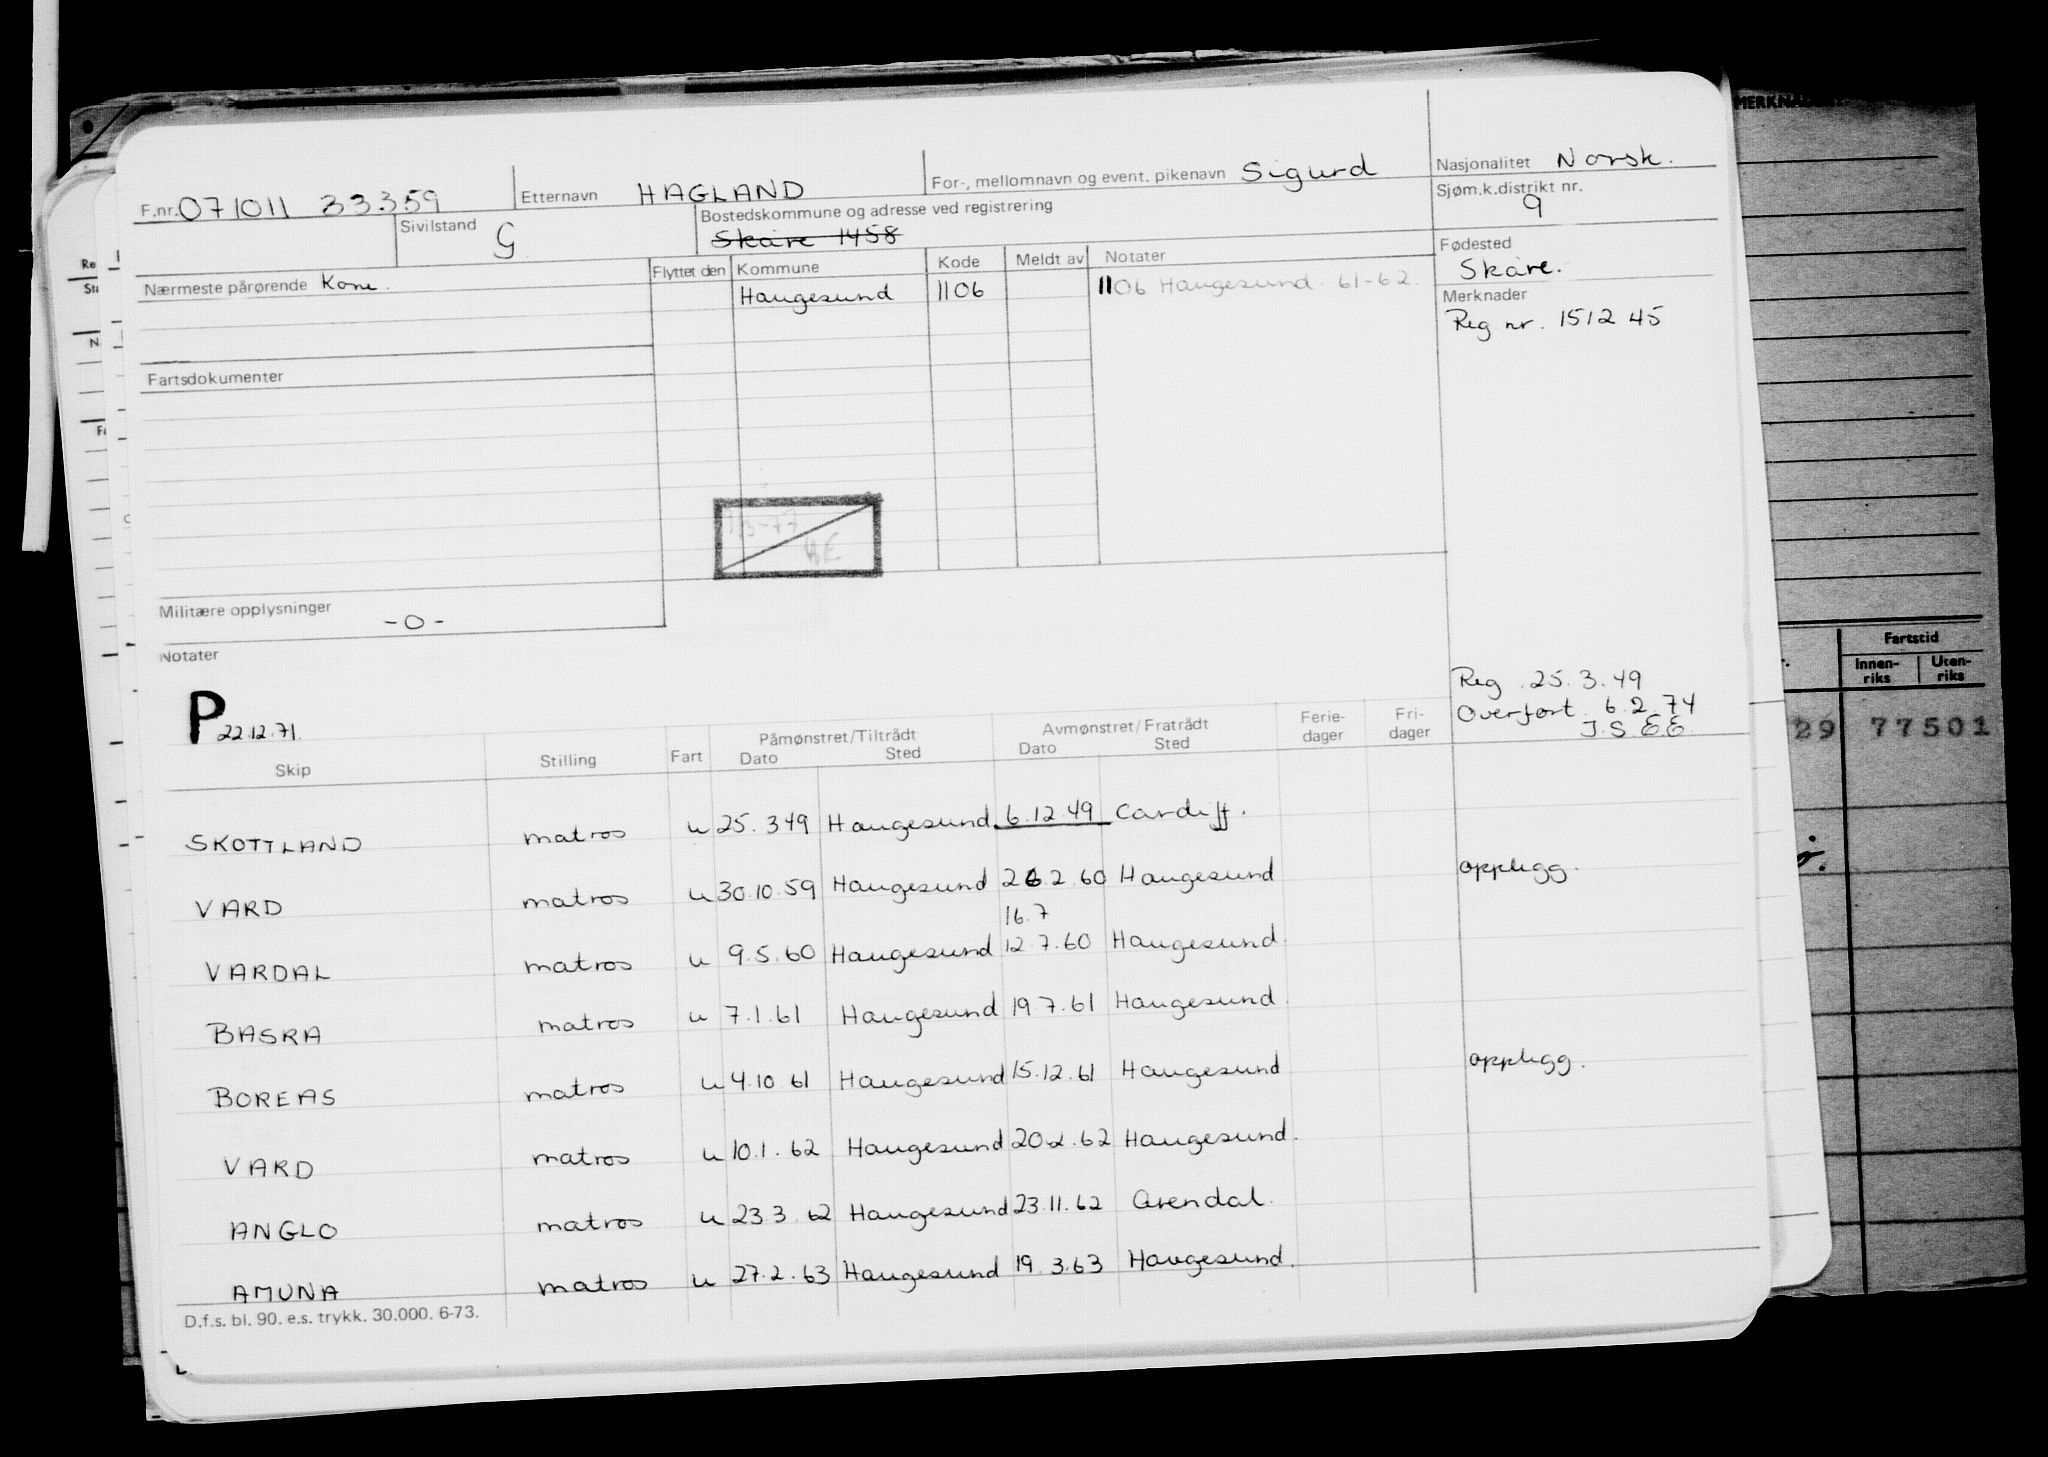 F.nr. 071011 33359 Etternavn HAGLAND For-, mellomnavn og event. pikenavn Sigurd Nasjonalitet Norsk.
Sivilstand G Bostedskommune og adresse ved registrering Sjøm.k.distrikt nr. 9
Skåre 1458
Nærmeste pårørende Kone. Flyttet den Kommune Kode Meldt av Notater Fødested
Skåre.
Haugesund 1106 1106 Haugesund. 61-62. Merknader
Reg nr. 1512 45
Fartsdokumenter
Militære opplysninger -0-
Notater
P 22.12.71.
Reg. 25.3.49
Overført. 6.2.74
J.S.E.E.
Skip Stilling Fart Påmønstret/Tiltrådt Dato Sted Avmønstret/Fratrådt Dato Sted Ferie-dager Fri-dager
SKOTTLAND matros u 25.3 49 Haugesund 6.12.49 Cardiff.
VARD matros u 30.10.59 Haugesund 26.2.60 Haugesund opplegg.
16.7
VARDAL matros u 9.5.60 Haugesund 12.7.60 Haugesund.
BASRA matros u 7.1.61 Haugesund 19.7.61 Haugesund.
BOREAS matros u 4.10 61 Haugesund 15.12.61 Haugesund opplegg.
VARD matros u 10.1.62 Haugesund 20.2.62 Haugesund.
ANGLO matros u 23.3.62 Haugesund 23.11.62 Arendal.
AMUNA matros u 27.2.63 Haugesund 19.3.63 Haugesund.
D.f.s. bl. 90. e.s. trykk. 30.000. 6-73.
Fartstid
Innen-riks Uten-riks
29 77501